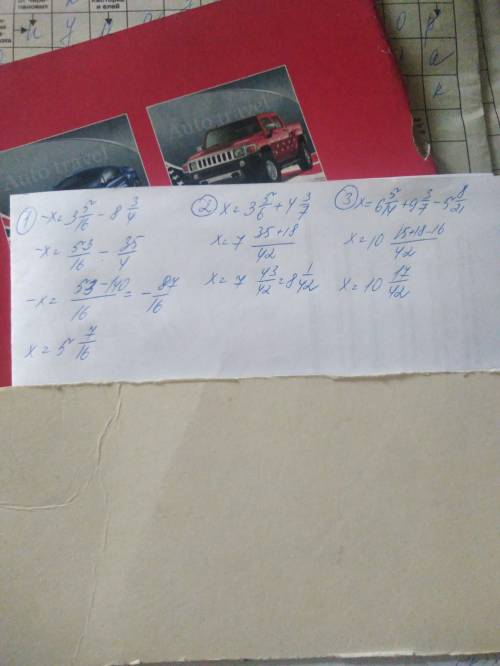 Auto travel
Auto travel
① -x = 3 5/16 - 8 3/4
-x = 53/16 - 35/4
-x = 53-140/16 = - 87/16
x = 5 7/16
② x = 3 5/6 + 4 3/7
x = 7 35+18/42
x = 7 43/42 = 8 1/42
③ x = 6 5/14 + 9 3/7 - 5 8/21
x = 10 15+18-16/42
x = 10 17/42